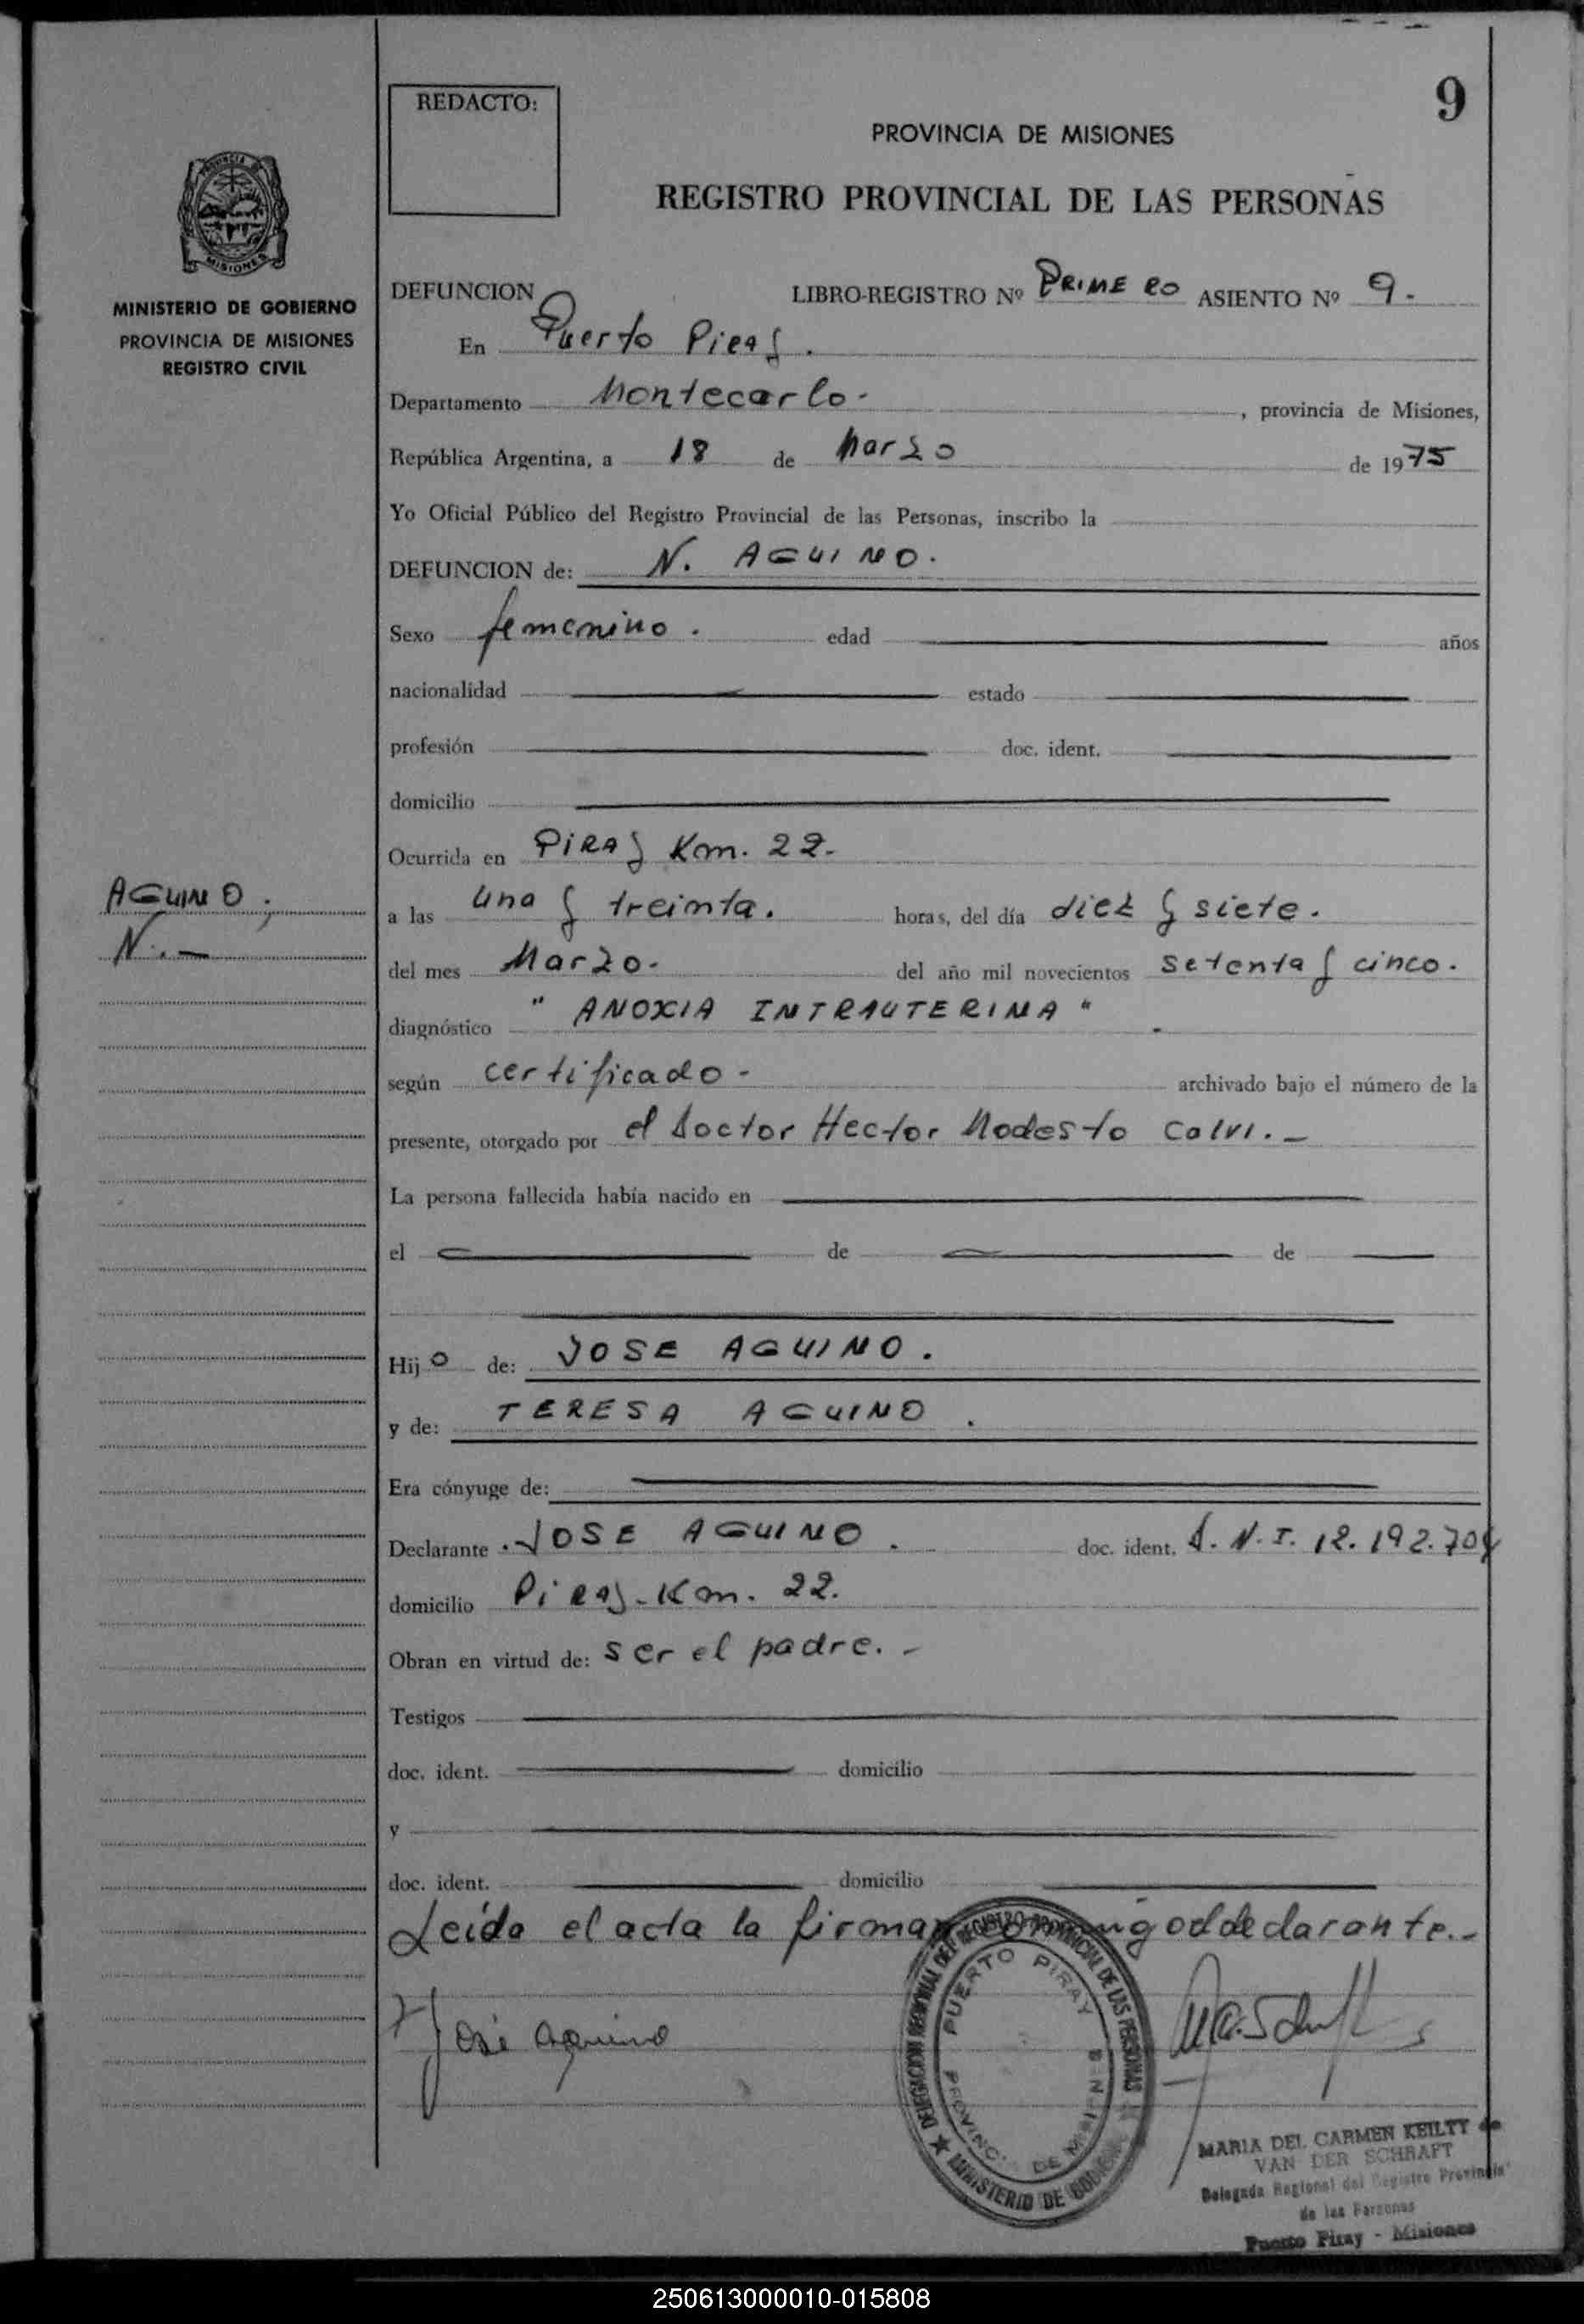 9
REDACTO:
PROVINCIA DE MISIONES
REGISTRO PROVINCIAL DE LAS PERSONAS
MISIONES
MINISTERIO DE GOBIERNO
PROVINCIA DE MISIONES
REGISTRO CIVIL
DEFUNCION LIBRO-REGISTRO Nº PRIMERO ASIENTO Nº 9.
En Puerto Piray.
Departamento Montecarlo. , provincia de Misiones,
República Argentina, a 18 de Marzo de 1975
Yo Oficial Público del Registro Provincial de las Personas, inscribo la
DEFUNCION de: N. AQUINO.
Sexo femenino. edad años
nacionalidad estado
profesión doc. ident.
domicilio
Ocurrida en PIRAY Km. 22.
AQUINO;
N.-
a las una y treinta. horas, del día diez y siete.
del mes Marzo. del año mil novecientos setenta y cinco.
diagnóstico "ANOXIA INTRAUTERINA".
según certificado - archivado bajo el número de la
presente, otorgado por el Doctor Hector Modesto Calvi.-
La persona fallecida había nacido en
el de de
Hijo de: JOSE AQUINO.
y de: TERESA AQUINO.
Era cónyuge de:
Declarante JOSE AQUINO. doc. ident. D.N.I. 12.192.704
domicilio Piray-Km. 22.
Obran en virtud de: ser el padre.-
Testigos
doc. ident. domicilio
y
doc. ident. domicilio
Leída el acta la firman conmigo el declarante.-
José Aquino
DELEGACION REGIONAL DEL REGISTRO PROVINCIAL DE LAS PERSONAS
PUERTO PIRAY
PROVINC. DE MISIONES
MINISTERIO DE GOBIERNO
MARIA DEL CARMEN KEILTY de
VAN DER SCHRAFT
Delegada Regional del Registro Provincial
de las Personas
Puerto Piray - Misiones
250613000010-015808